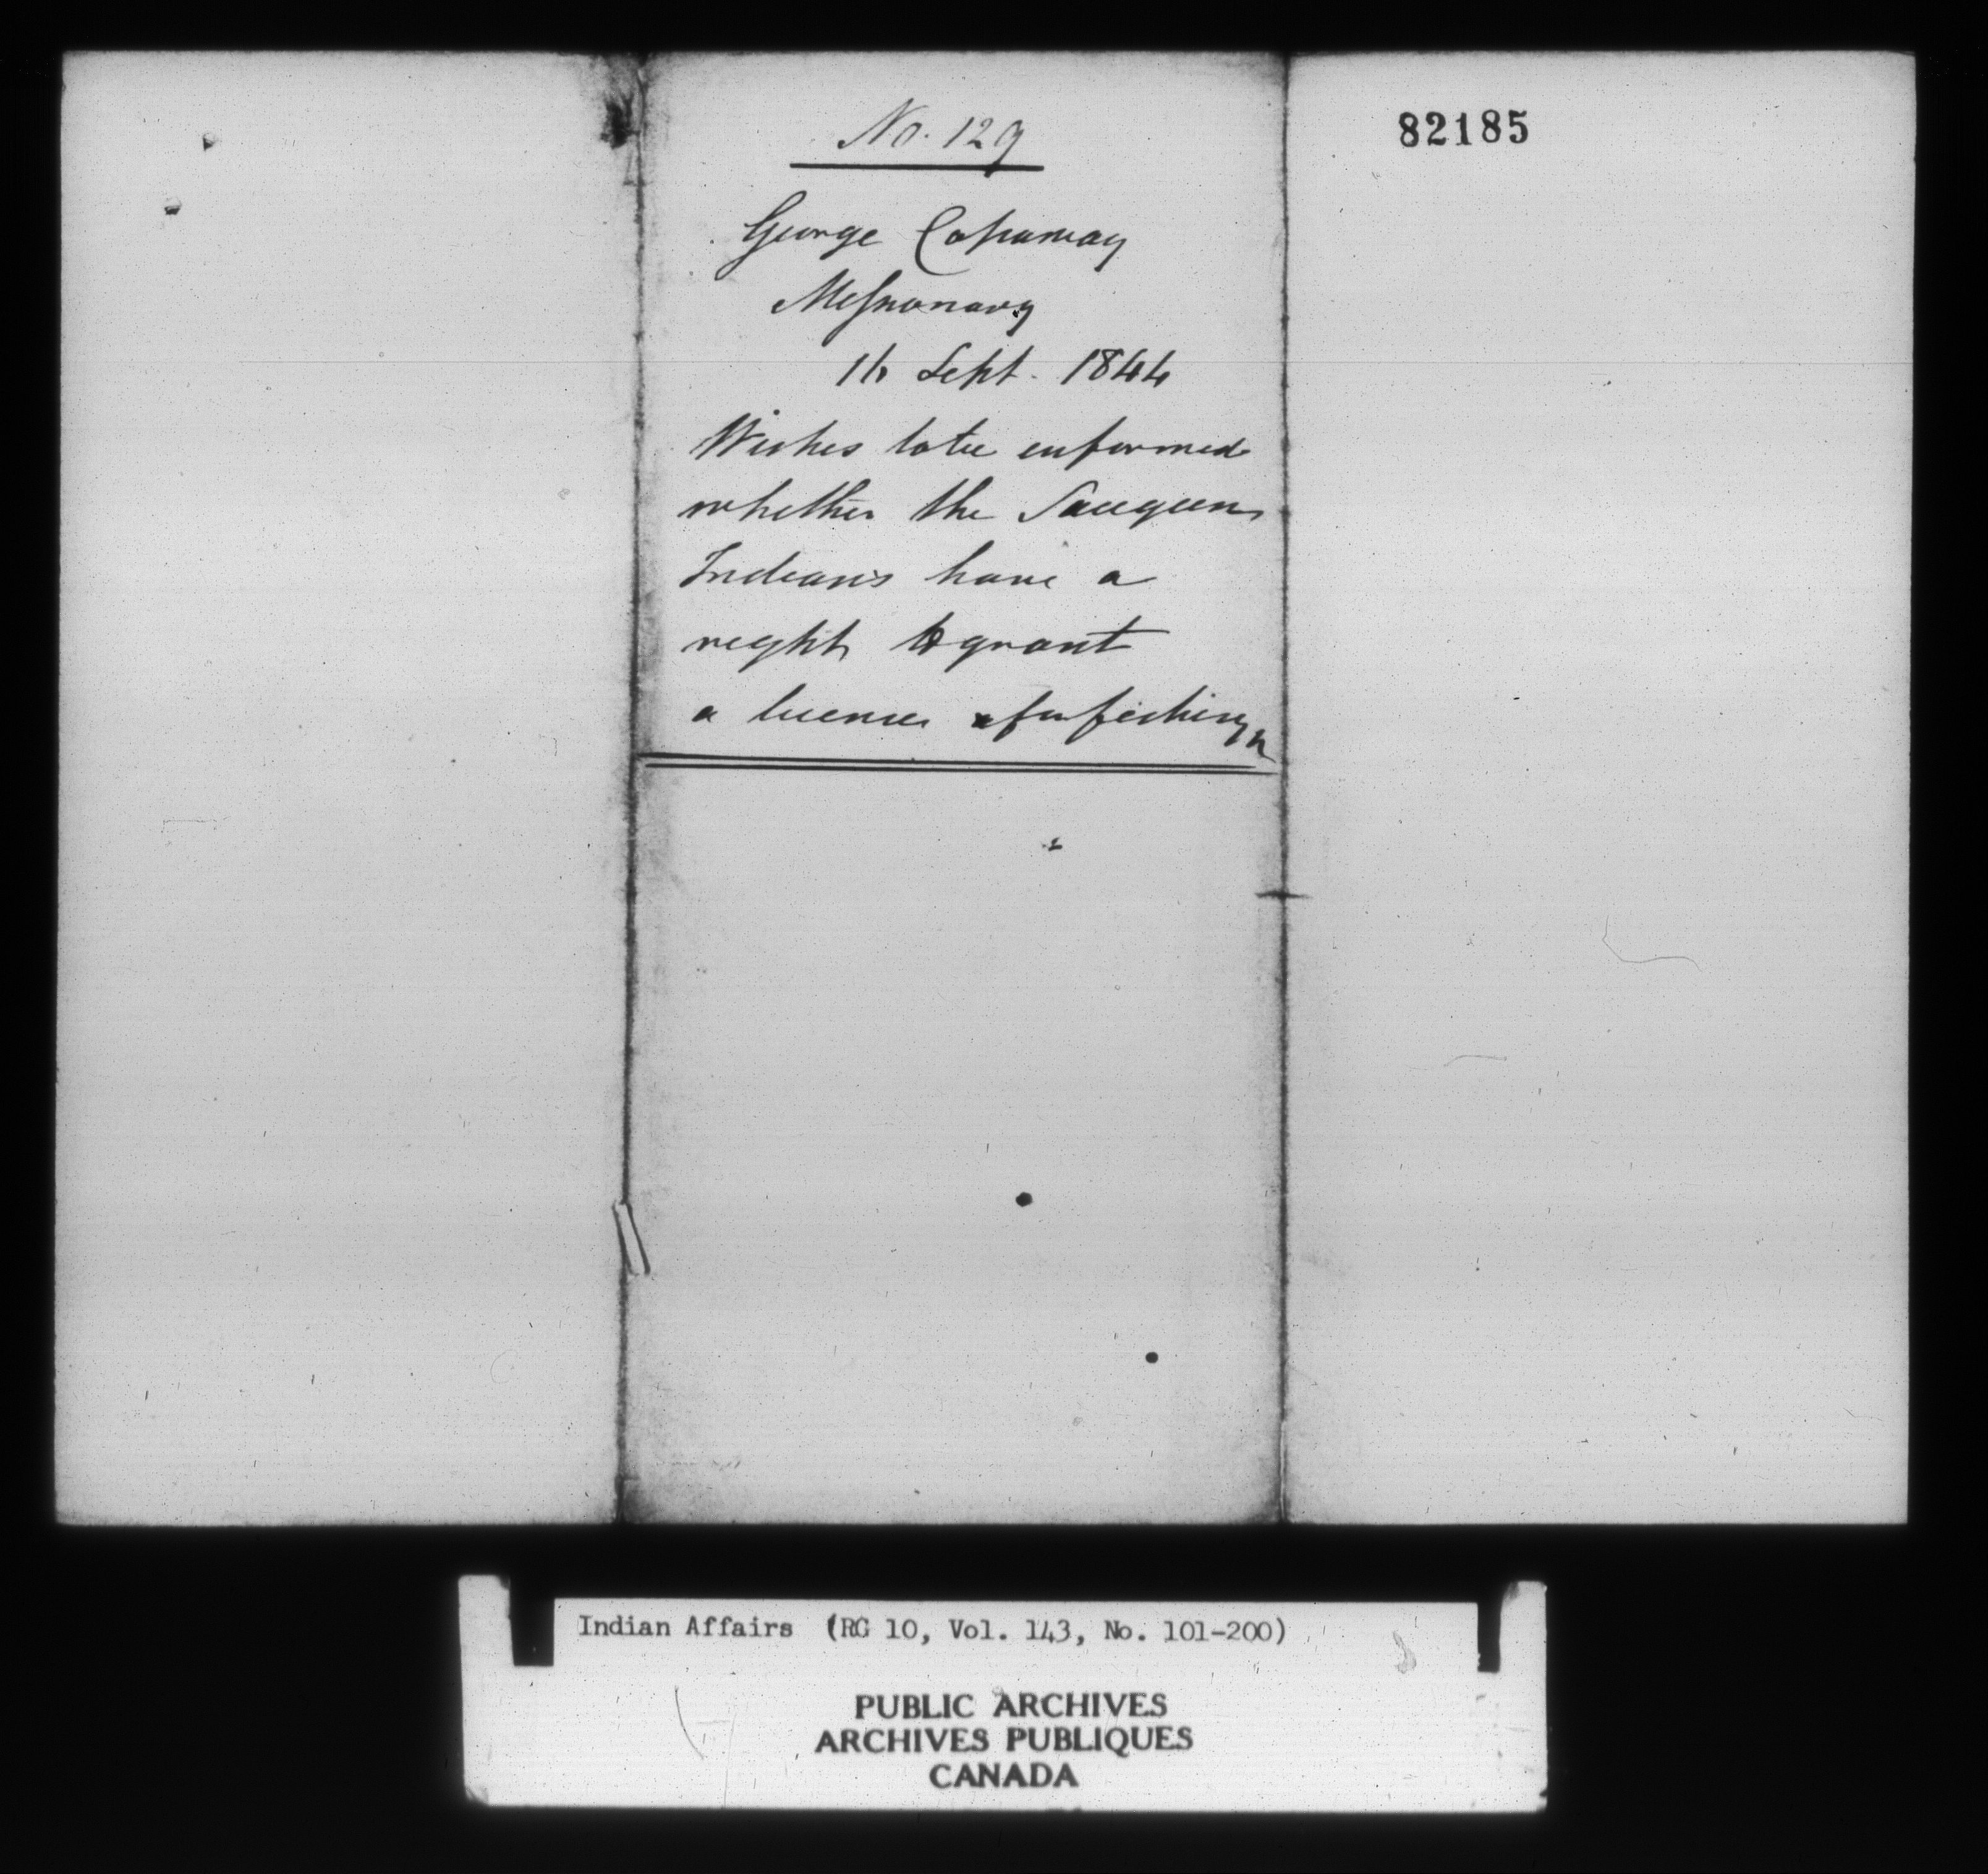 No. 129
George Copaway
Missionary
16 Sept. 1844
Wishes to be informed
whether the Saugeen
Indians have a
right to grant
a license for fishing
82185
Indian Affairs (RG 10, Vol. 143, No. 101-200)
PUBLIC ARCHIVES
ARCHIVES PUBLIQUES
CANADA